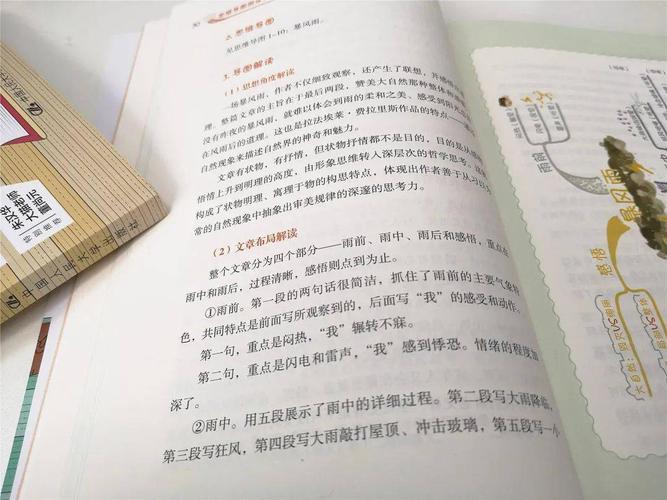 2. 思维导图
见思维导图1-10：暴风雨。
3. 导图解读
（1）思想角度解读
一场暴风雨，作者不仅细致观察，还产生了联想，并感悟
理。整篇文章的主旨在于最后两段，赞美大自然那种整体
没有昨夜的暴风雨，就难以体会到雨的柔和之美、感受到阳光
在风雨后的道理。这也是拉法埃莱·费拉里斯作品的特点——通
自然现象来描述自然界的神奇和魅力。
文章有状物，有抒情，但状物抒情都不是目的，目的是从感
悟情上升到明理的高度，由形象思维转入深层次的哲学思考。这
构成了状物明理、寓理于物的构思特点，体现出作者善于从习以
常的自然现象中抽象出审美规律的深邃的思考力。
（2）文章布局解读
整个文章分为四个部分——雨前、雨中、雨后和感悟，重点在
雨中和雨后，过程清晰，感悟则点到为止。
①雨前。第一段的两句话很简洁，抓住了雨前的主要气象特
色，共同特点是前面写所观察到的，后面写“我”的感受和动作。
第一句，重点是闷热，“我”辗转不寐。
第二句，重点是闪电和雷声，“我”感到悸恐。情绪的程度加
深了。
②雨中。用五段展示了雨中的详细过程。第二段写大雨降临，
第三段写狂风，第四段写大雨敲打屋顶、冲击玻璃，第五段写一个
中国人民大学出版社
特别推荐
雨前
暴风雨
感悟
VS
大自然：